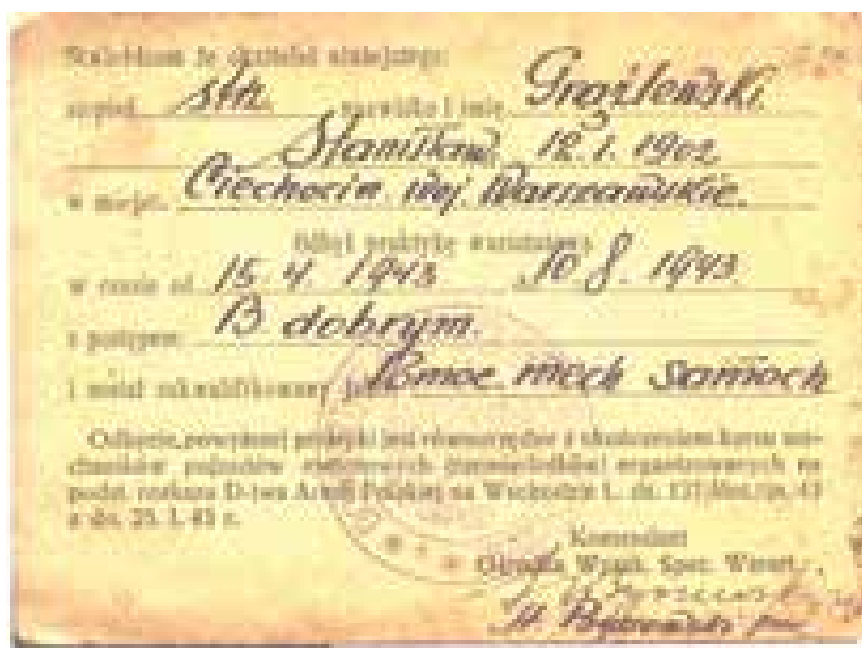 Stwierdzam że okaziciel niniejszego:
stopień str. nazwisko i imię
Stanisław 12.1.1902
w miejsc. Ciechocin woj. Warszawskie.
Odbył praktykę warsztatową
w czasie od 15.4.1943 do 10 8. 1943
z postępem B dobrym.
i został zakwalifikowany jako Pomoc mech samoch
Odbycie powyższej praktyki jest równorzędne z ukończeniem kursu me-
chaników pojazdów organizowanych na
podst. rozkazu D-twa Armii Polskiej na Wschodzie L. dz.
z dn. 25. 1. 43 r.
Komendant
Ośrodka Wyszk. Spec. Warszt.